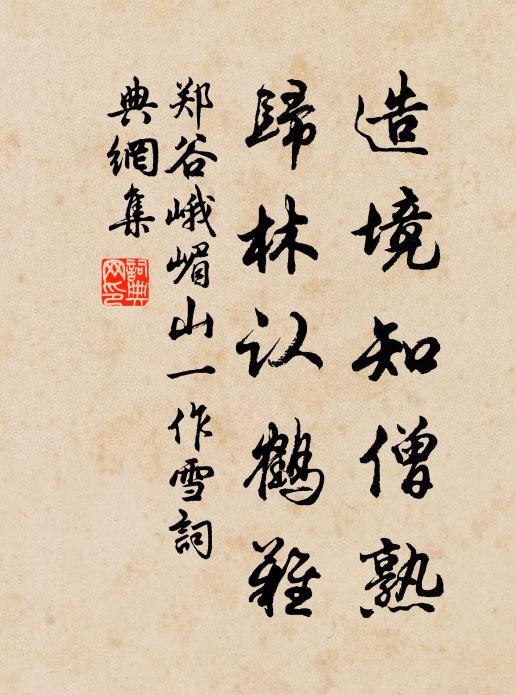 造境知僧熟
歸林认鶴難
郑谷峨嵋山一作雪詞
典網集
詞典
网印